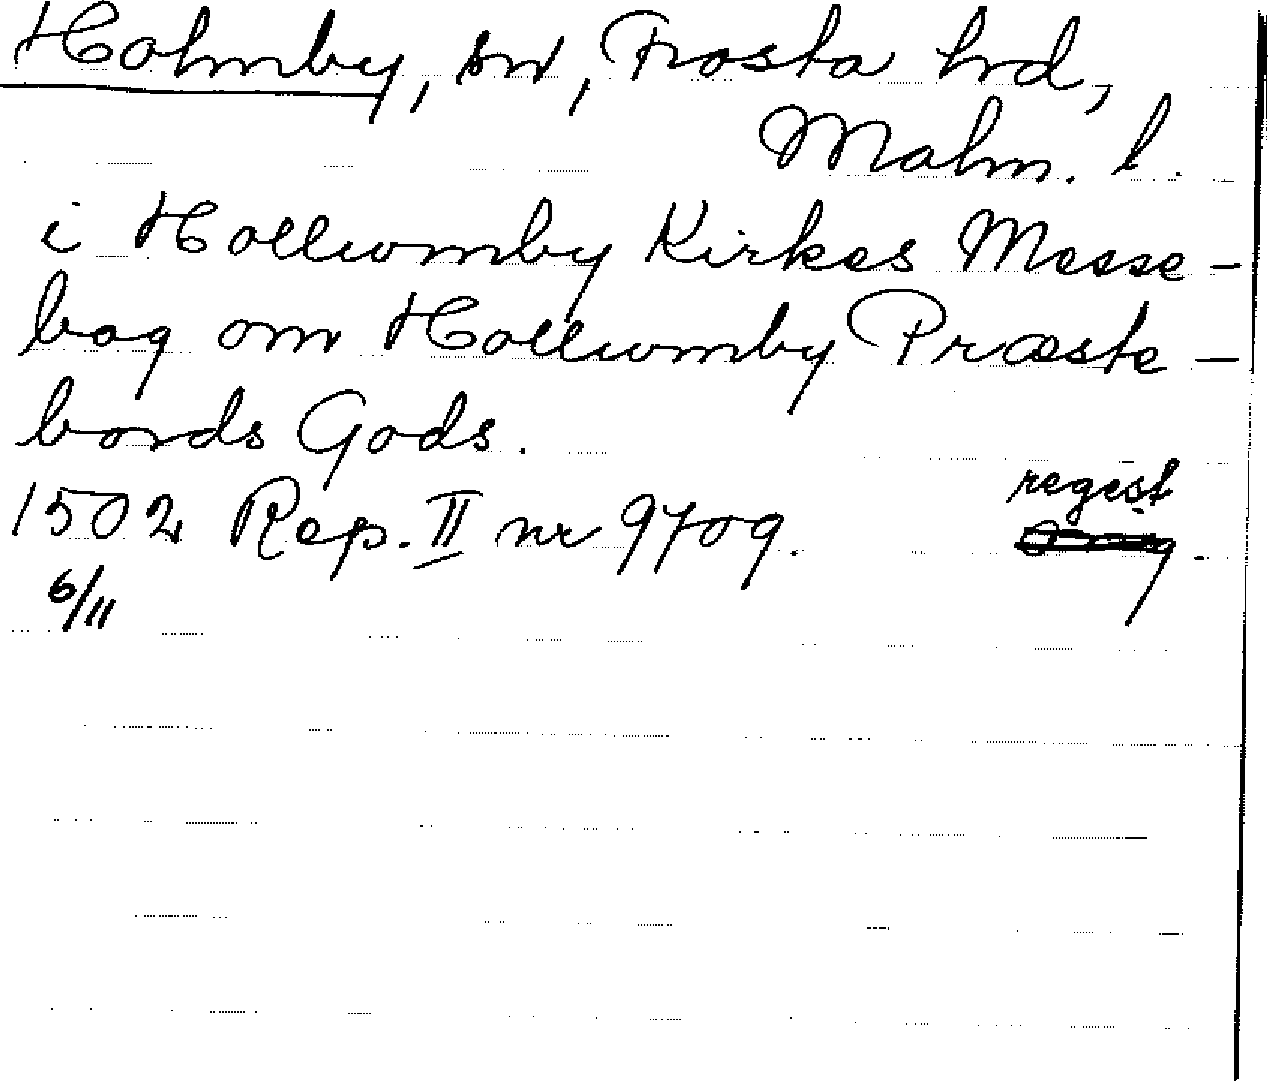 Holmby, sn, Frosta hrd,
Malm. l.
i Hollwmby Kirkes Messe-
bog om Hollwmby Præste-
bords Gods.
regest
1502 Rep. II nr 9709.
6/11